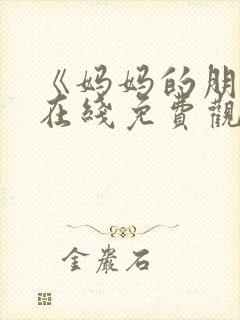 《妈妈的朋
在綫免費觀
金巖石